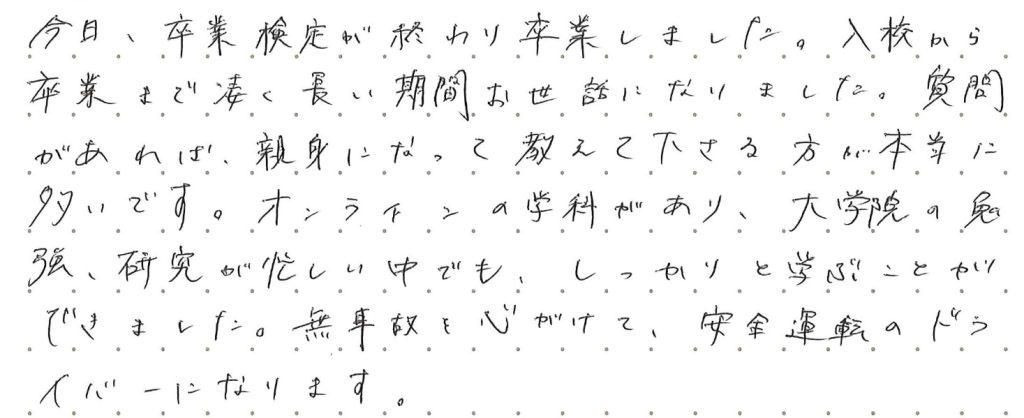 今日、卒業検定が終わり卒業しました。入校から
卒業まで凄く長い期間お世話になりました。質問
があれば、親身になって教えて下さる方が本当に
多いです。オンラインの学科があり、大学院の勉
強、研究が忙しい中でも、しっかりと学ぶことが
できました。無事故を心がけて、安全運転のドラ
イバーになります。